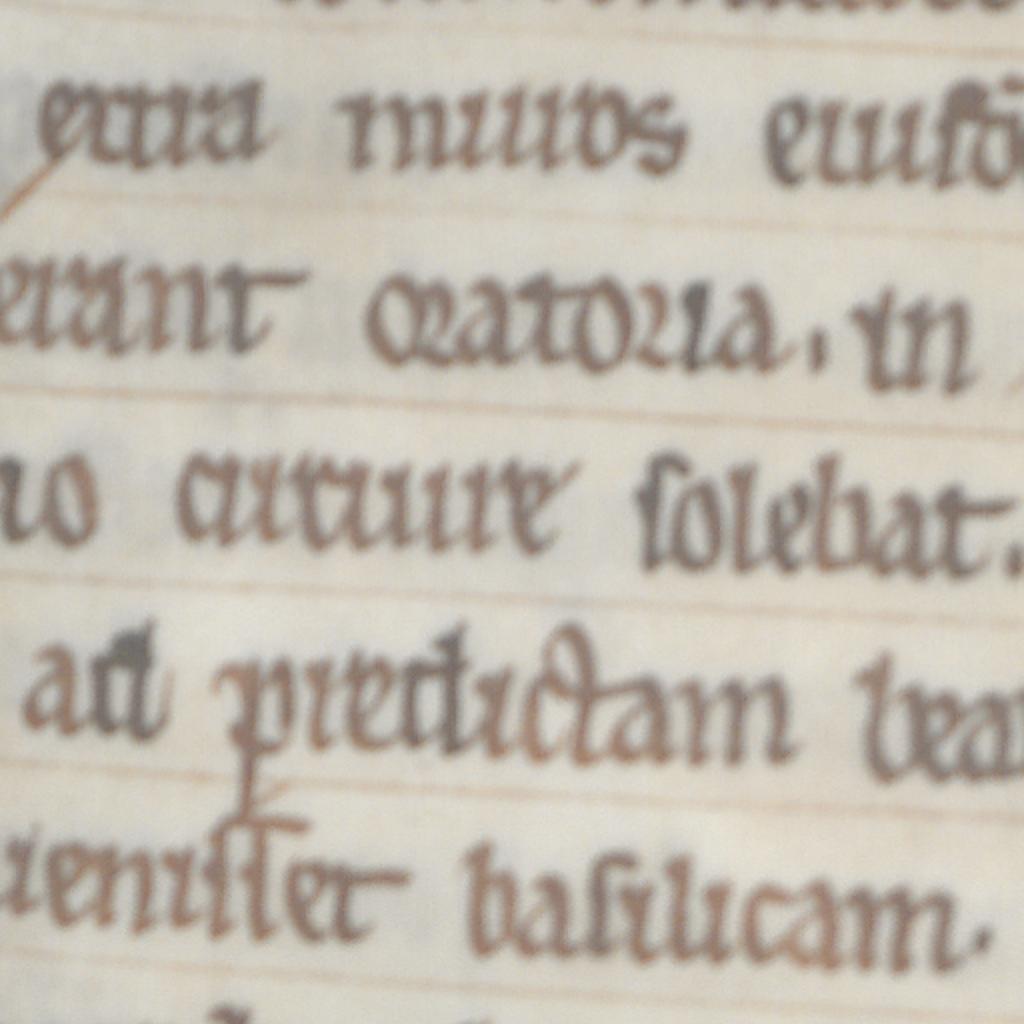 extra muros eiuſdē
erant oratoria, in
circuire ſolebat.
ad predictam
ueniſſet baſilicam.